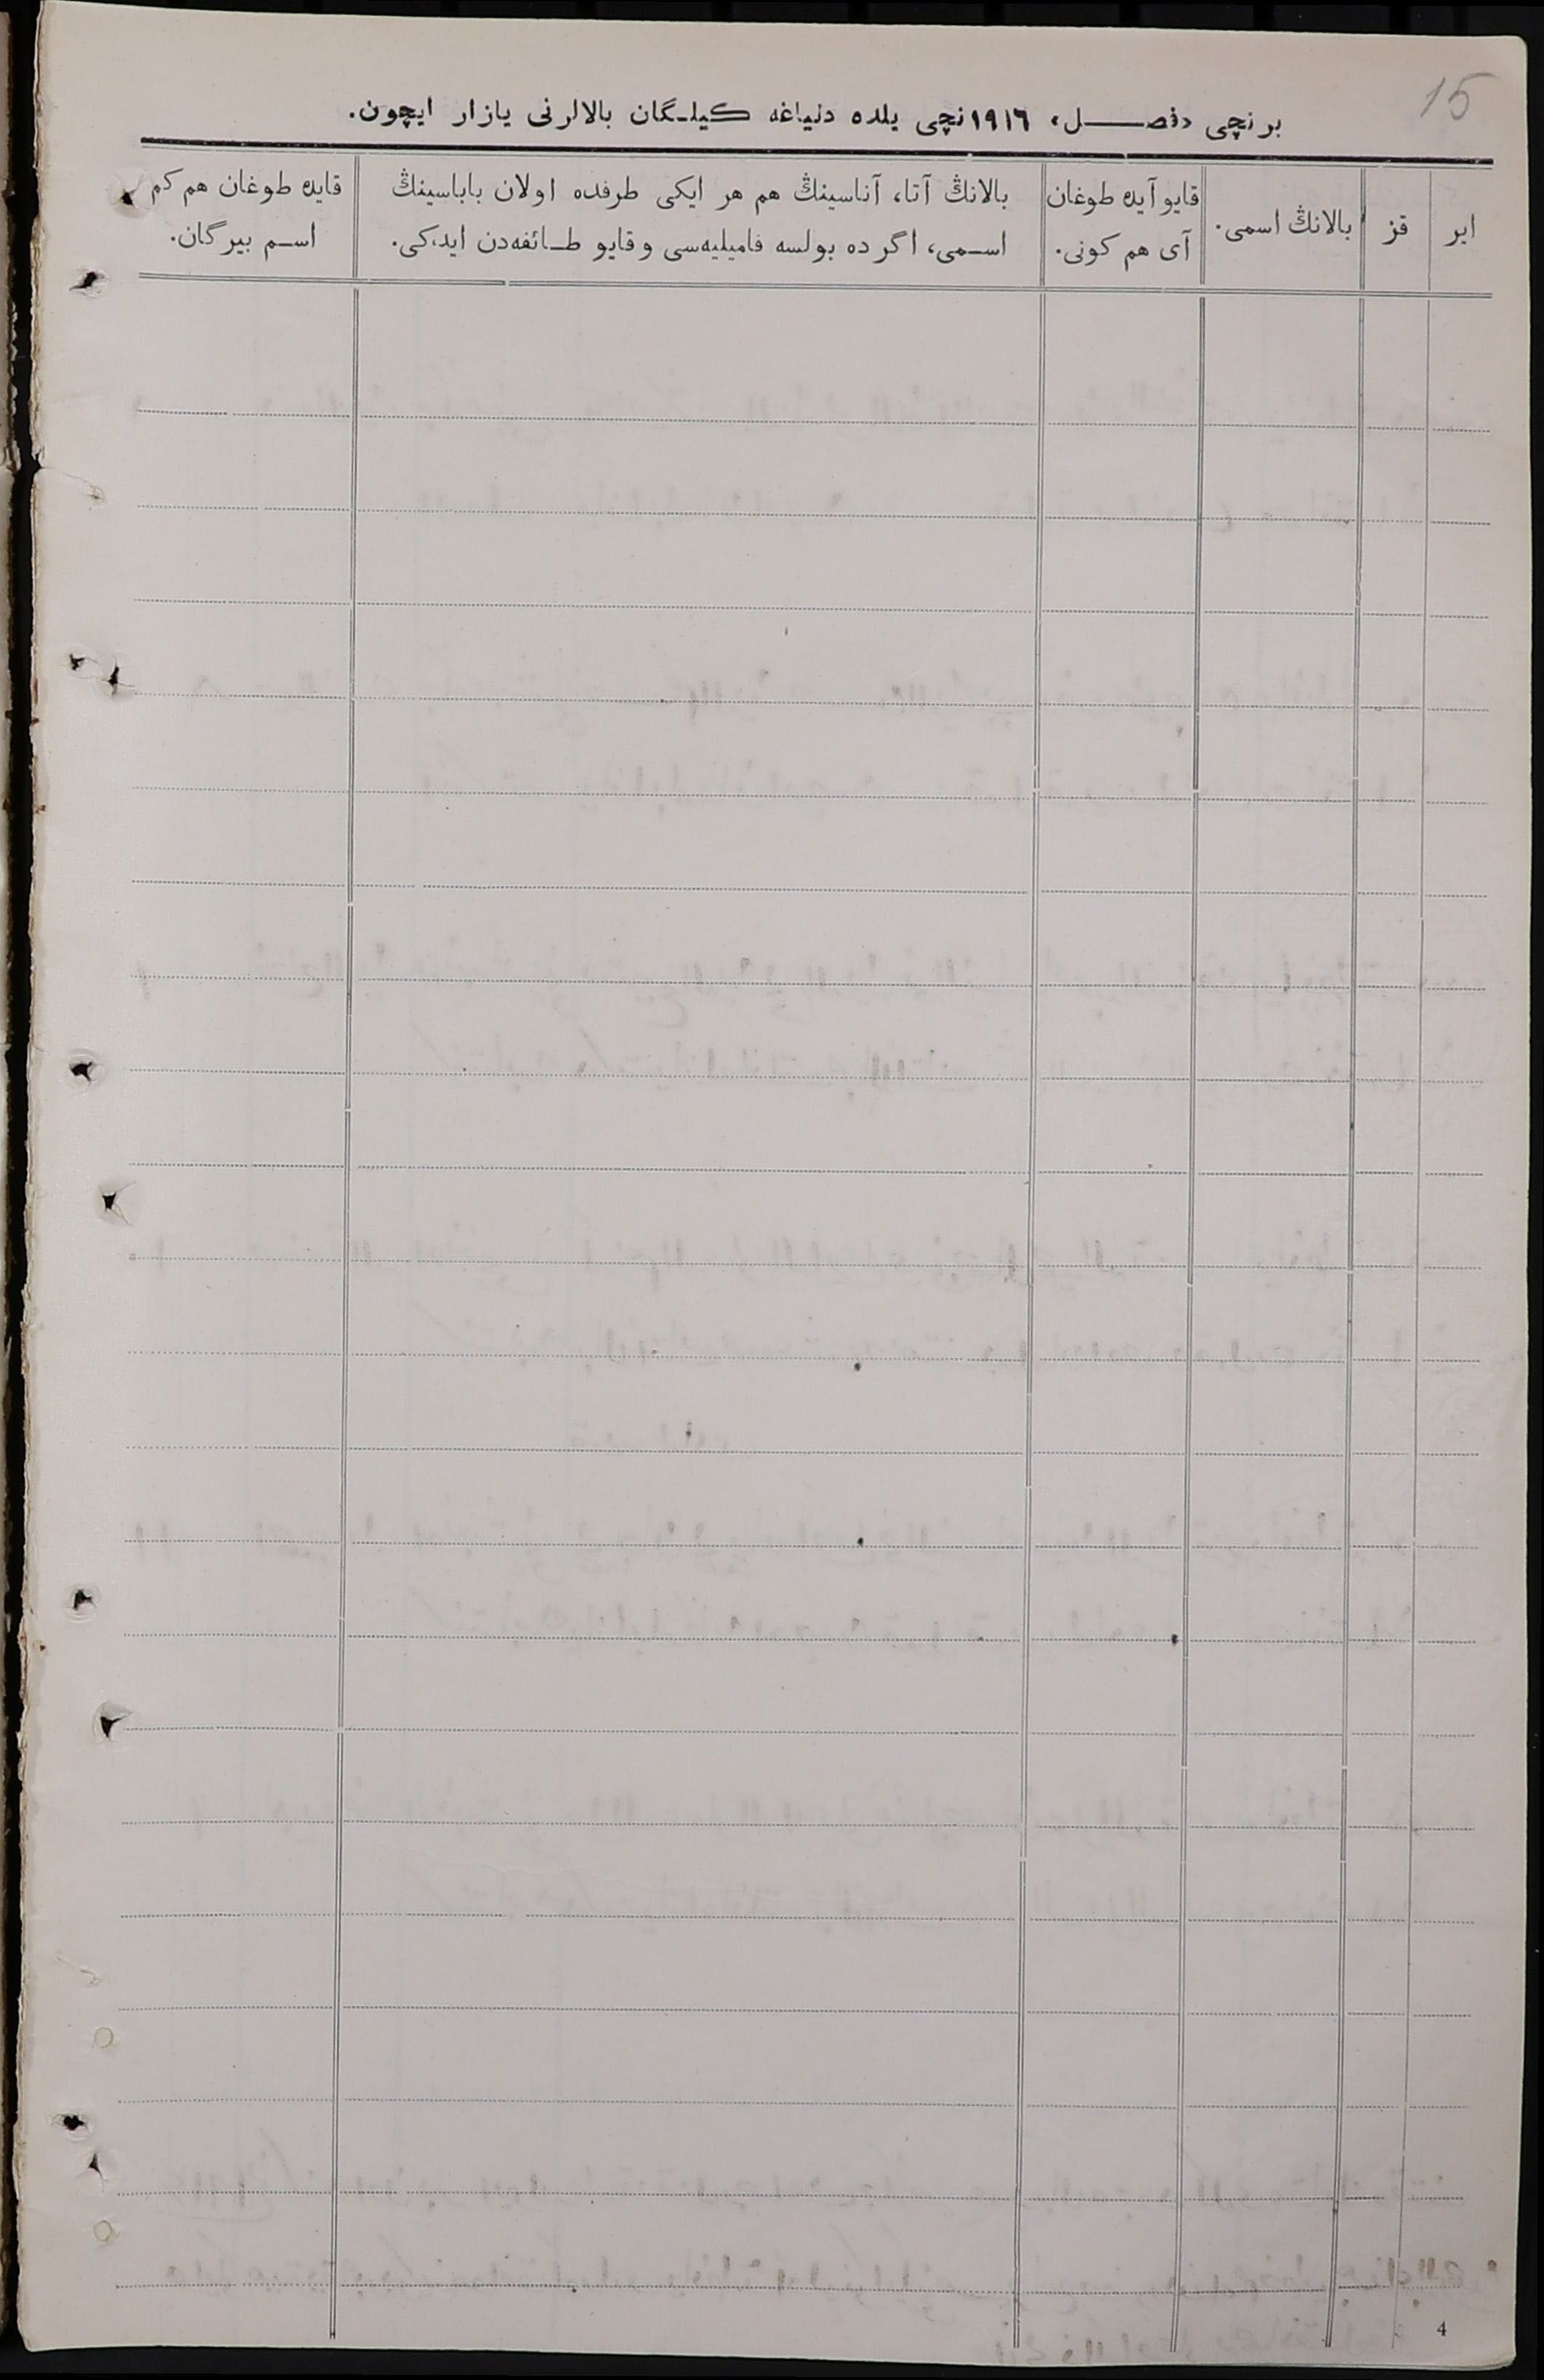 15
برنچی «فصل» ١٩١٦نچی یلده دنیاغه کیلگان بالالرنی یازار ایچون.
ایر
قز
بالانڭ اسمی.
قایو آیده طوغان
آی هم کونی.
بالانڭ آتا، آناسینڭ هم هر ایکی طرفده اولان باباسینڭ
اسمی، اگر ده بولسه فامیلیه‌سی و قایو طائفه‌دن ایدکی.
قایده طوغان هم کم
اسم بیرگان.
4